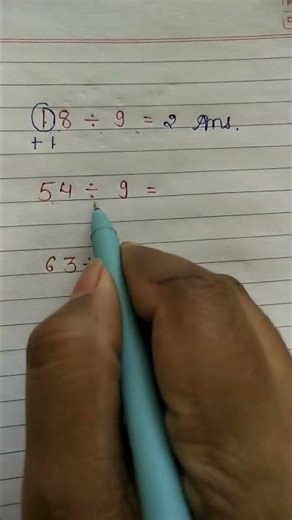 18 ÷ 9 = 2 Ans.
+1
54 ÷ 9 =
63 ÷